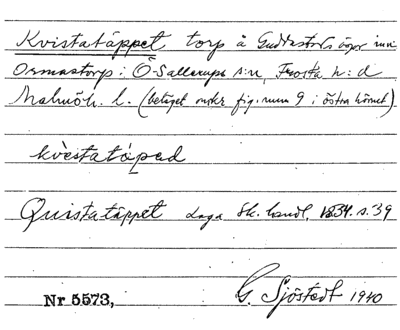 Kvistatäppet torp å Gudmtorps ägor inu
Ormastorp i Ö. Sallerups s:n, Frosta h:d
Malmöh. l. (beläget under fig. num 9 i östra hörnet)
kvèstatápad
Quistatäppet Laga Sk. handl. 1834. s. 39
Nr 5573, G. Sjöstedt 1940